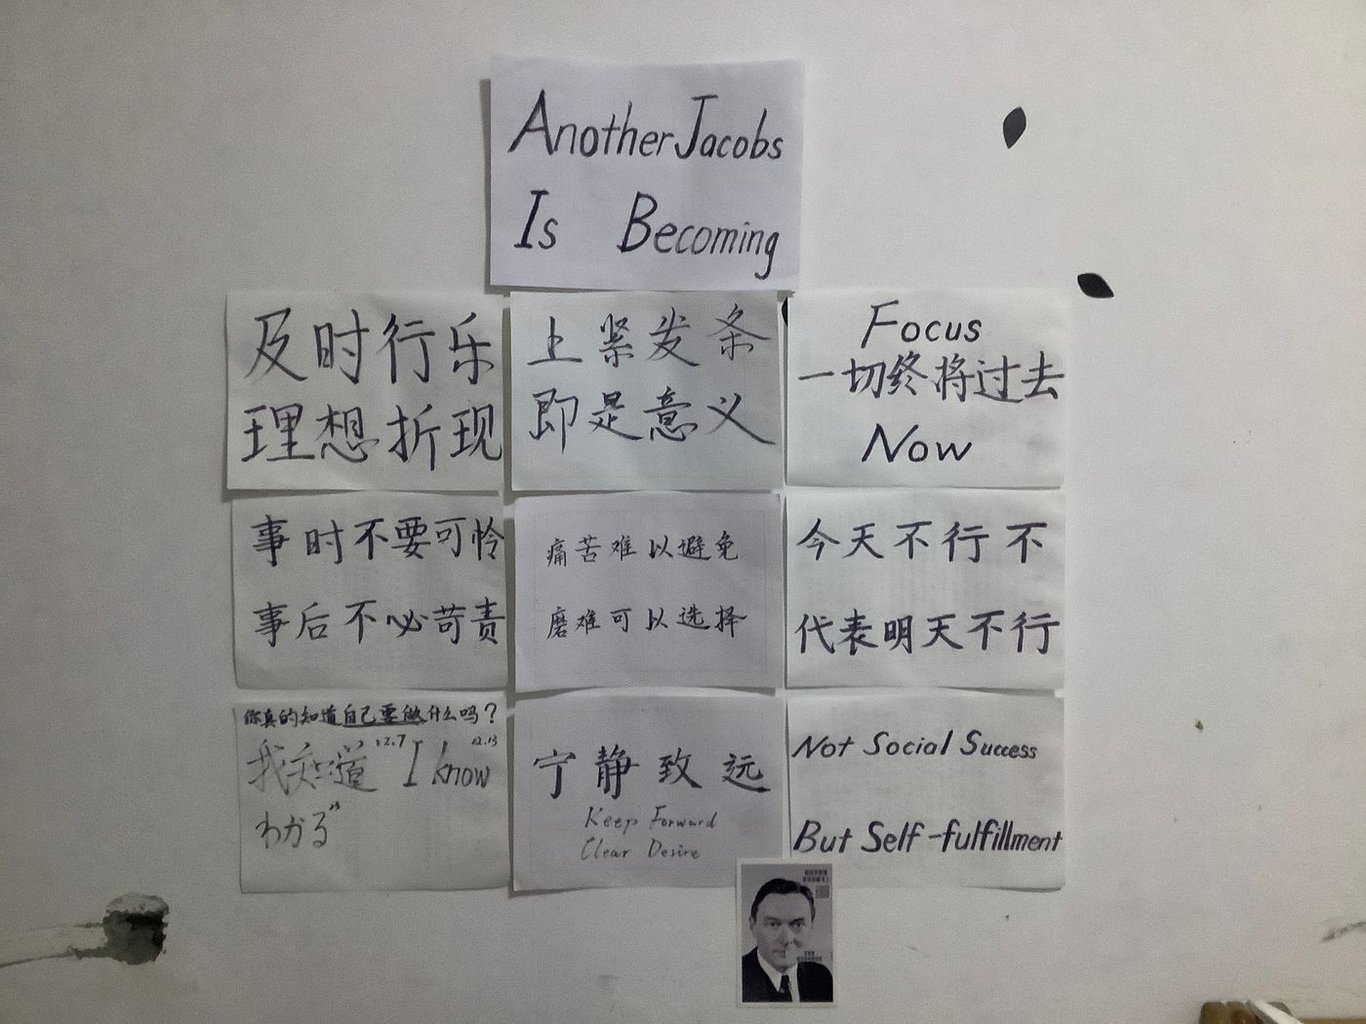 Another Jacobs
Is Becoming
及时行乐
理想折现
上紧发条
即是意义
Focus
一切终将过去
Now
事时不要可怜
事后不必苛责
痛苦难以避免
磨难可以选择
今天不行不
代表明天不行
你真的知道自己要做什么吗？
我知道 12.7 I know 12.13
わかる
宁静致远
Keep Forward
Clear Desire
Not Social Success
But Self-fulfillment